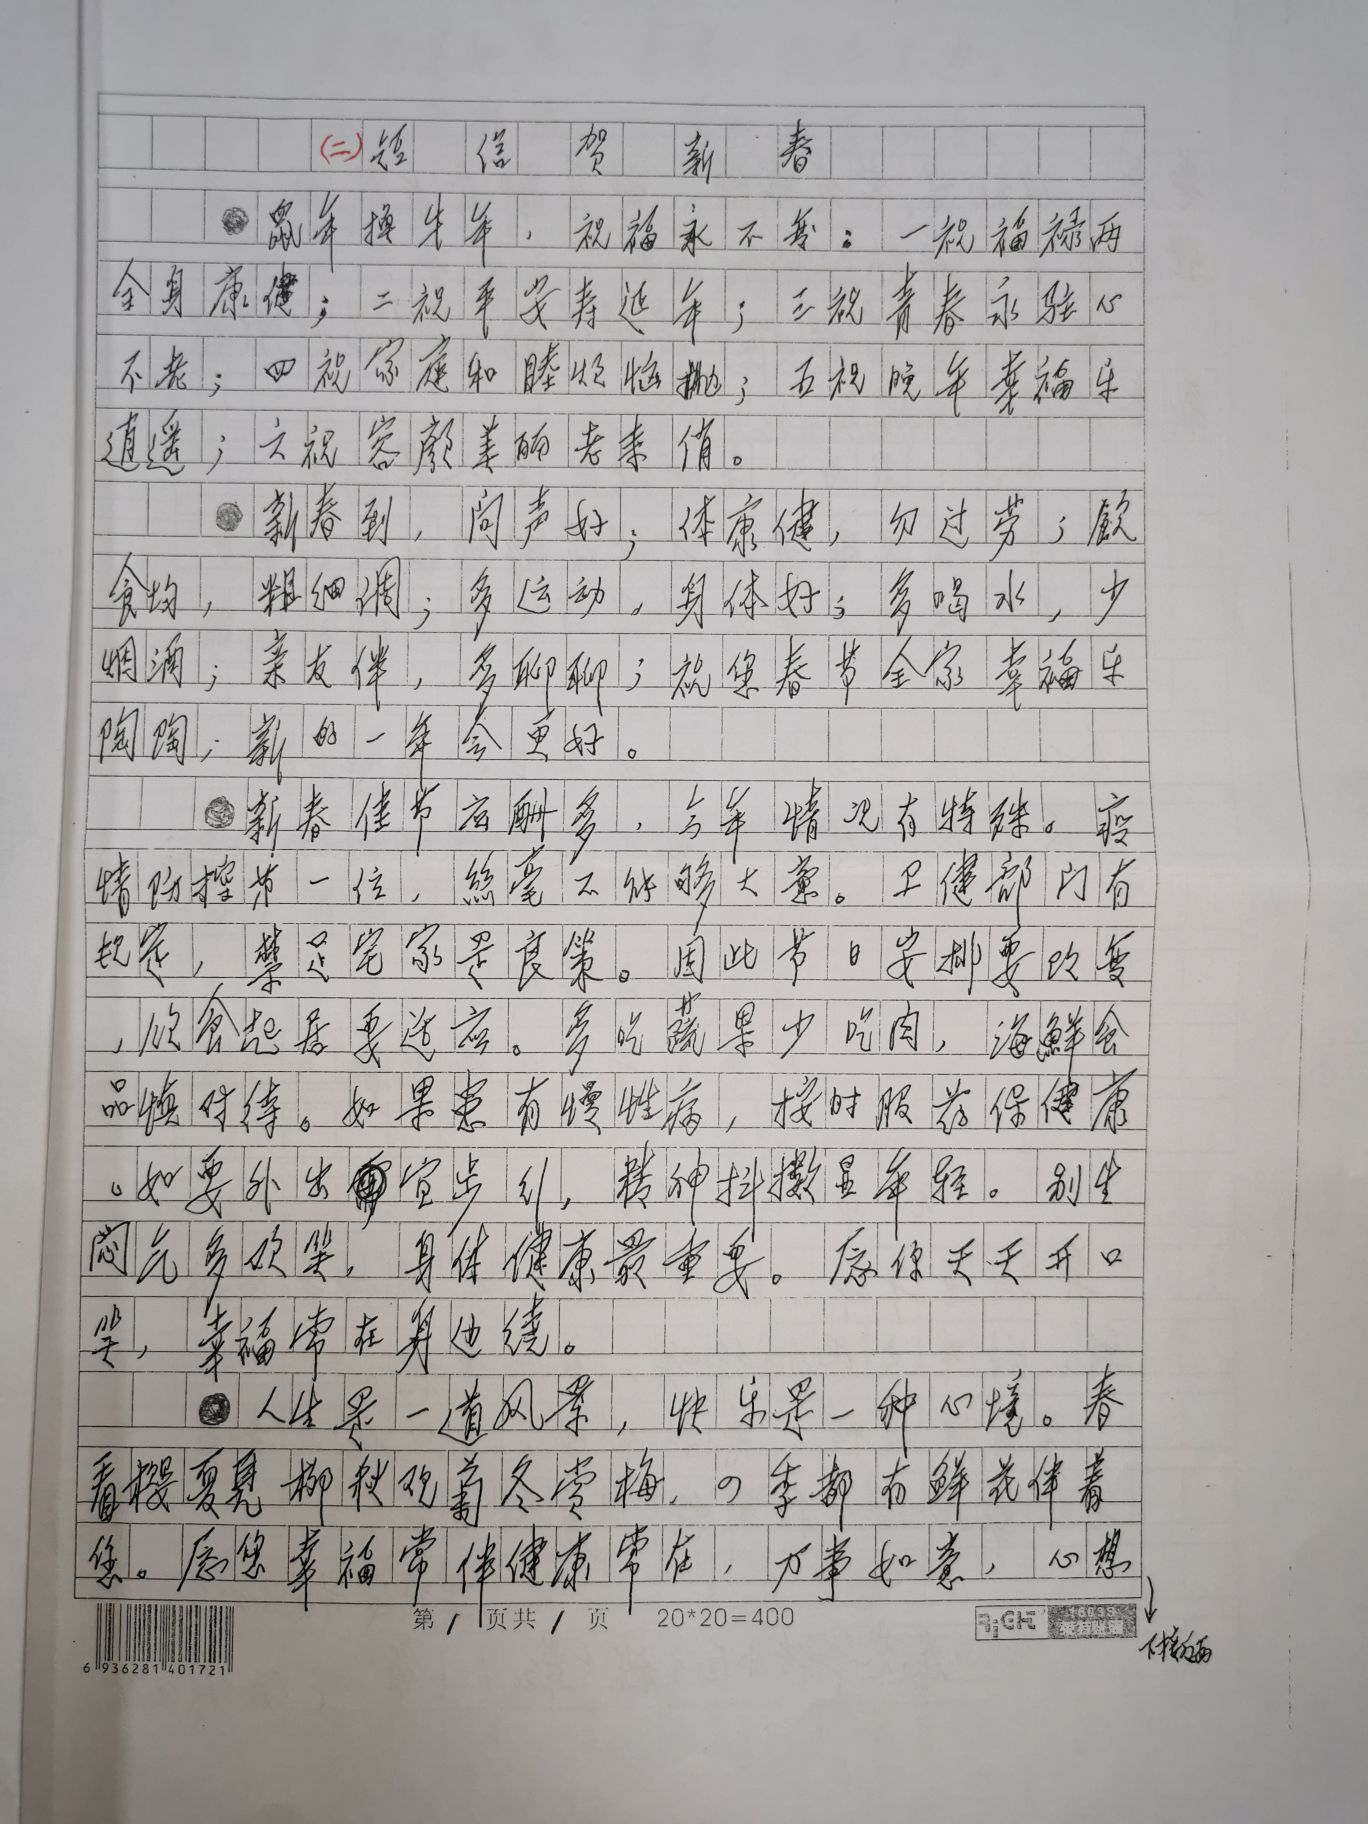 (二)短信贺新春
●鼠年换牛年，祝福永不变：一祝福禄两
全身康健；二祝平安寿延年；三祝青春永驻心
不老；四祝家庭和睦烦恼抛；五祝晚年幸福乐
逍遥；六祝容颜美丽老来俏。
●新春到，问声好；体康健，勿过劳；饮
食均，粗细调；多运动，身体好；多喝水，少
烟酒；亲友伴，多聊聊；祝您春节全家幸福乐
陶陶；新的一年会更好。
●新春佳节应酬多，今年情况有特殊。疫
情防控第一位，丝毫不能够大意。卫健部门有
规定，禁足宅家是良策。因此节日安排要改变
，饮食起居要适应。多吃蔬果少吃肉，海鲜食
品慎对待。如果患有慢性病，按时服药保健康
。如要外出宜步行，精神抖擞显年轻。别生
闷气多欢笑，身体健康最重要。愿你天天开口
笑，幸福常在身边绕。
●人生是一道风景，快乐是一种心境。春
看樱夏见柳秋观菊冬赏梅，四季都有鲜花伴着
您。愿您幸福常伴健康常在，万事如意，心想
第1页共1页 20*20=400
6936281401721
下接反面